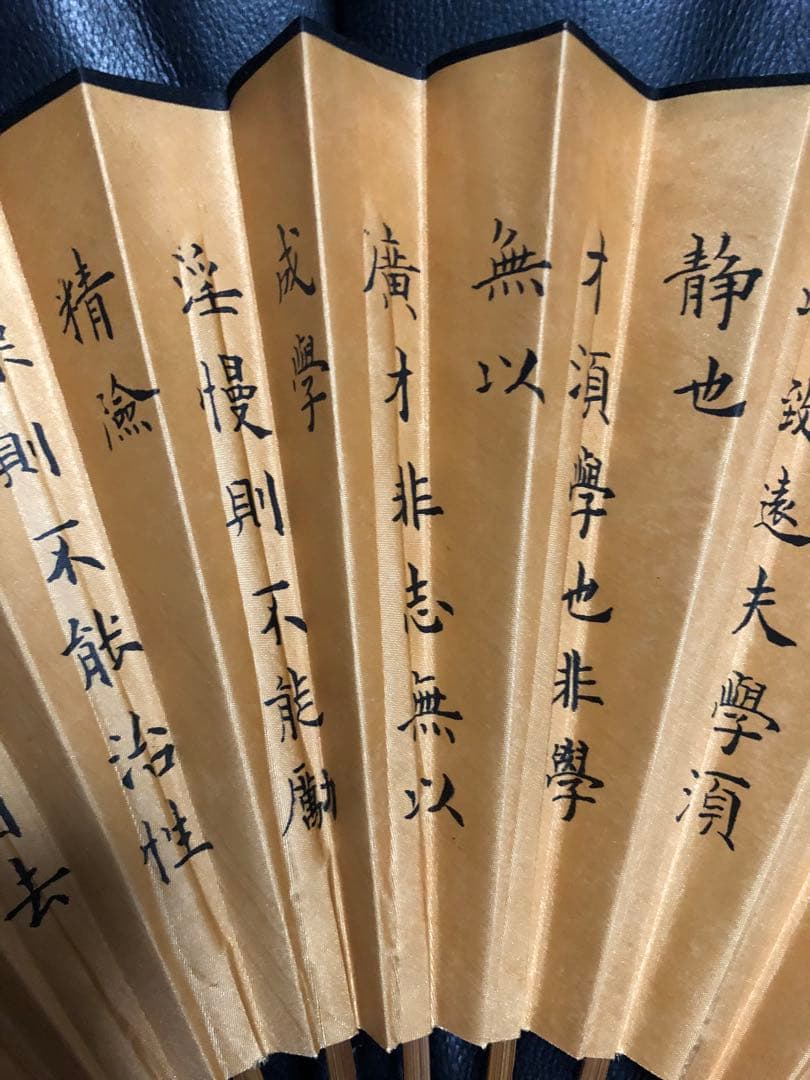 致遠夫學須
静也
才須學也非學
無以
廣才非志無以
成學
淫慢則不能勵
精險
則不能治性
去